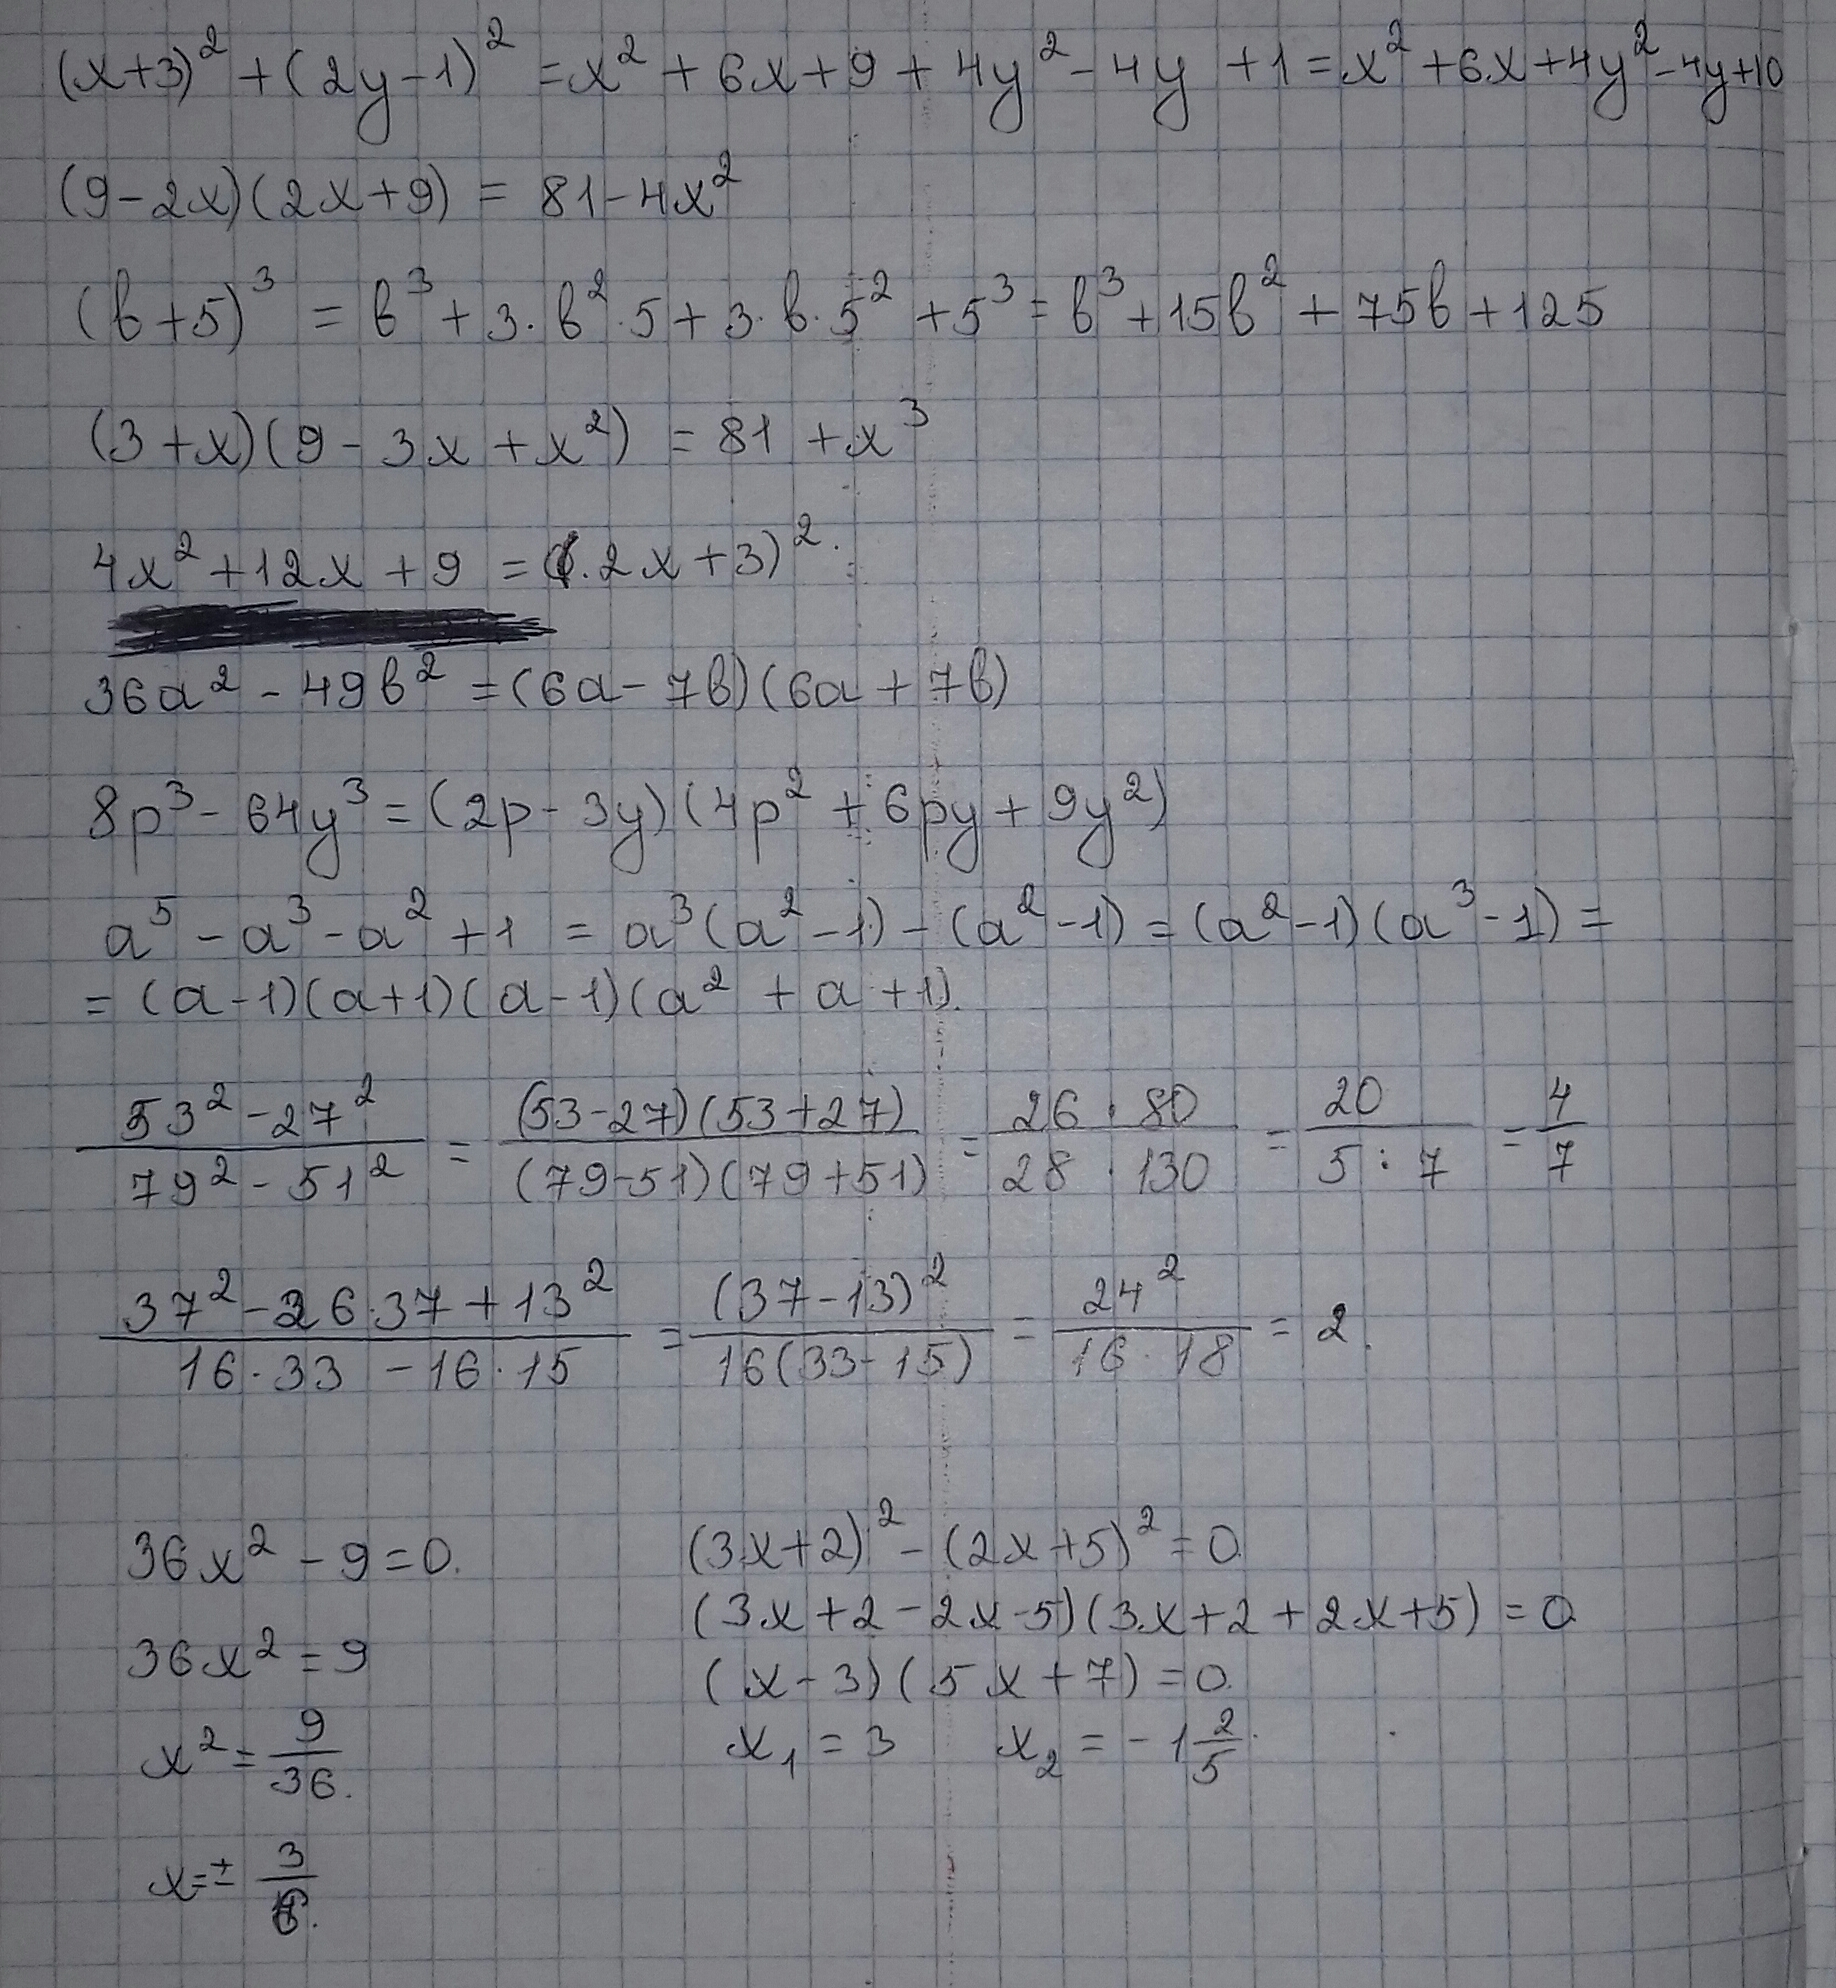 (x+3)² + (2y-1)² = x² + 6x + 9 + 4y² - 4y + 1 = x² + 6x + 4y² - 4y + 10
(9-2x)(2x+9) = 81 - 4x²
(в+5)³ = в³ + 3·в²·5 + 3·в·5² + 5³ = в³ + 15в² + 75в + 125
(3+x)(9 - 3x + x²) = 81 + x³
4x² + 12x + 9 = (2x+3)².
36a² - 49в² = (6a - 7в)(6a + 7в)
8p³ - 64y³ = (2p - 3y)(4p² + 6py + 9y²)
a⁵ - a³ - a² + 1 = a³(a² - 1) - (a² - 1) = (a² - 1)(a³ - 1) =
= (a-1)(a+1)(a-1)(a² + a + 1).
(53² - 27²)/(79² - 51²) = ((53-27)(53+27))/((79-51)(79+51)) = (26·80)/(28·130) = 20/(5·7) = 4/7
(37² - 26·37 + 13²)/(16·33 - 16·15) = (37-13)²/(16(33-15)) = 24²/(16·18) = 2.
36x² - 9 = 0.
36x² = 9
x² = 9/36.
x = ± 3/6.
(3x+2)² - (2x+5)² = 0.
(3x + 2 - 2x - 5)(3x + 2 + 2x + 5) = 0
(x - 3)(5x + 7) = 0.
x₁ = 3 x₂ = -1 2/5.